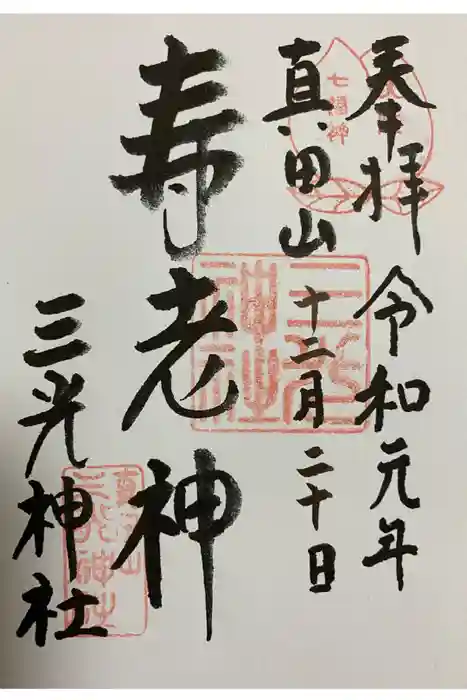 奉拝 令和元年
真田山 十二月二十日
寿老神
三光神社
七福神
三光神社
真田山
三光神社